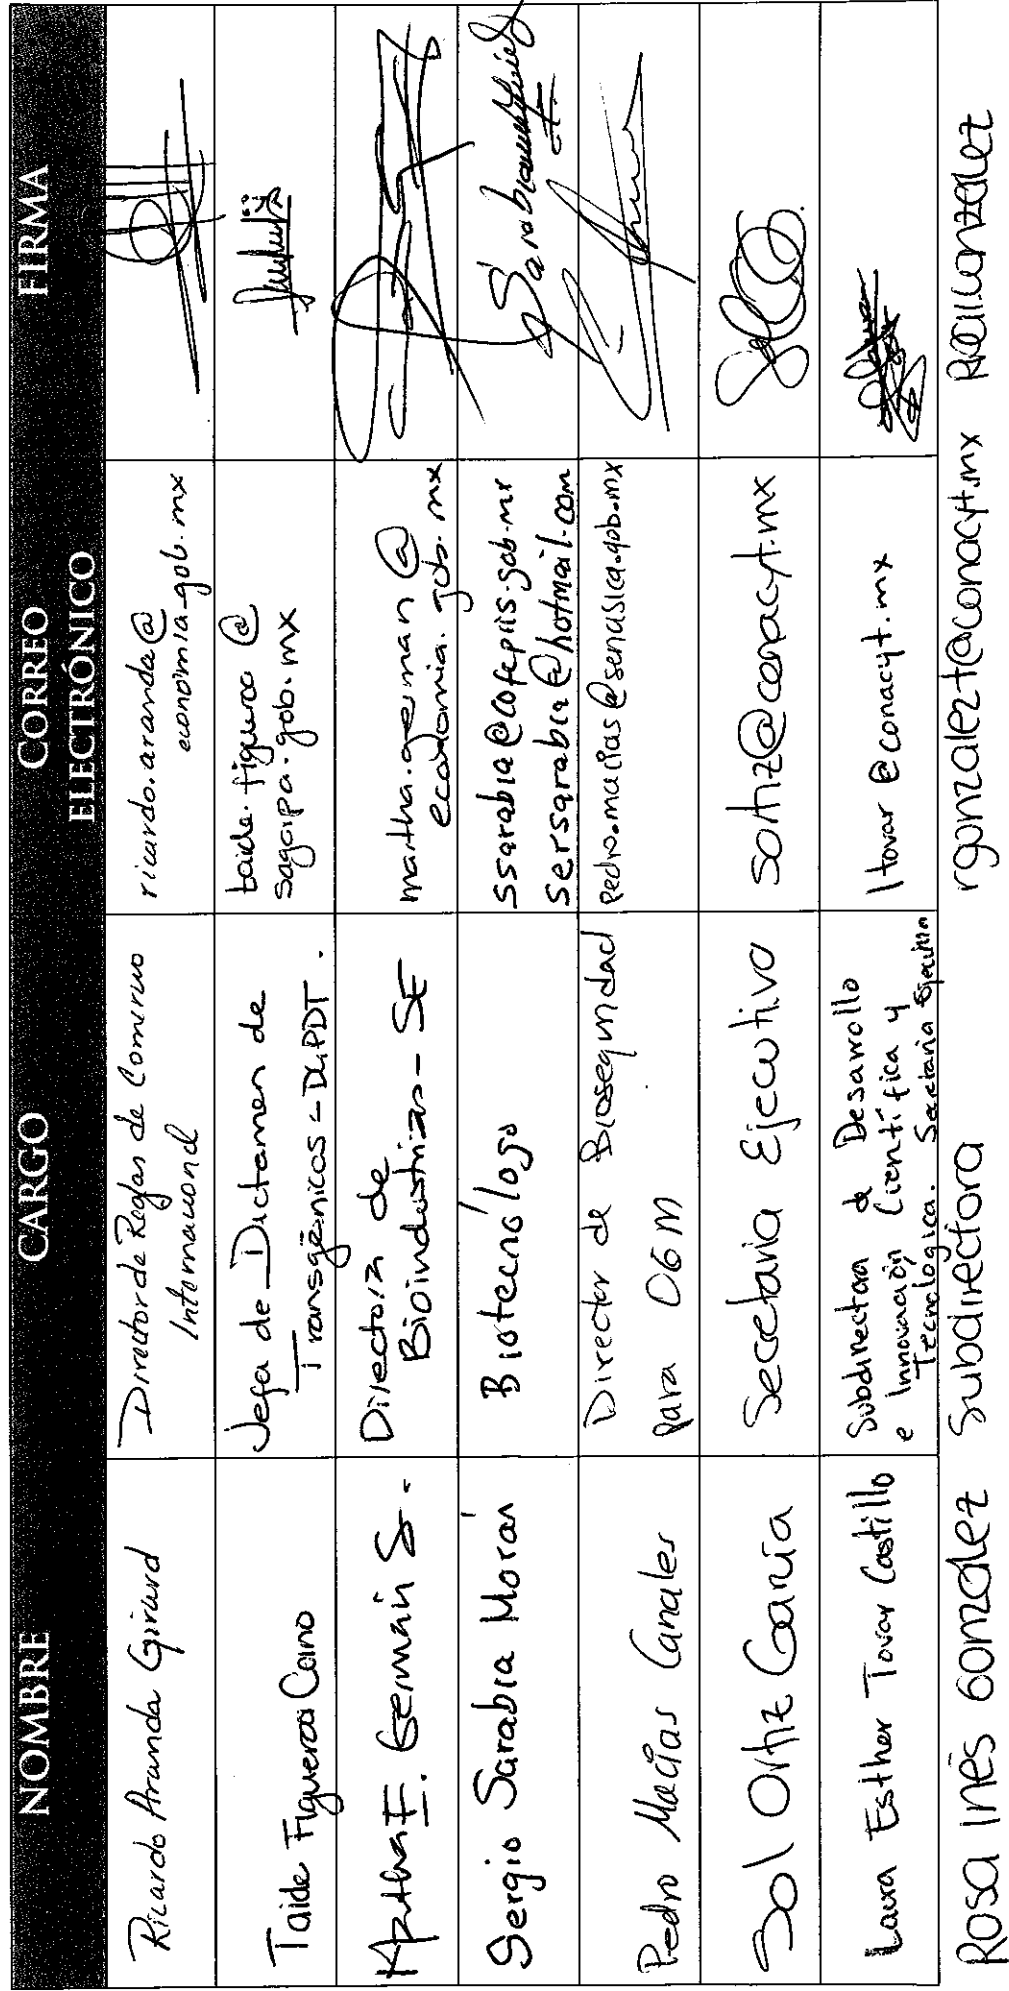 NOMBRE CARGO CORREO ELECTRÓNICO FIRMA
Ricardo Aranda Girard
Director de Reglas de Comercio
Internacional
ricardo.aranda@
economia.gob.mx
Taide Figueroa Cano
Jefa de Dictamen de
Transgénicos - DGPDT.
taide.figueroa@
sagarpa.gob.mx
Martha E. Germán S.
Directora de
Bioindustrias - SE
martha.german@
economia.gob.mx
Sergio Sarabia Morán
Biotecnólogo
ssarabia@cofepris.gob.mx
sersarabia@hotmail.com
Pedro Macías Canales
Director de Bioseguridad
para OGM
pedro.macias@senasica.gob.mx
Sol Ortiz García
Secretaria Ejecutiva
sortiz@conacyt.mx
Laura Esther Tovar Castillo
Subdirectora de Desarrollo
e Innovación Científica y
Tecnologica. Secretaria Ejecutiva
ltovar@conacyt.mx
Rosa Inés González Subdirectora rgonzalezt@conacyt.mx